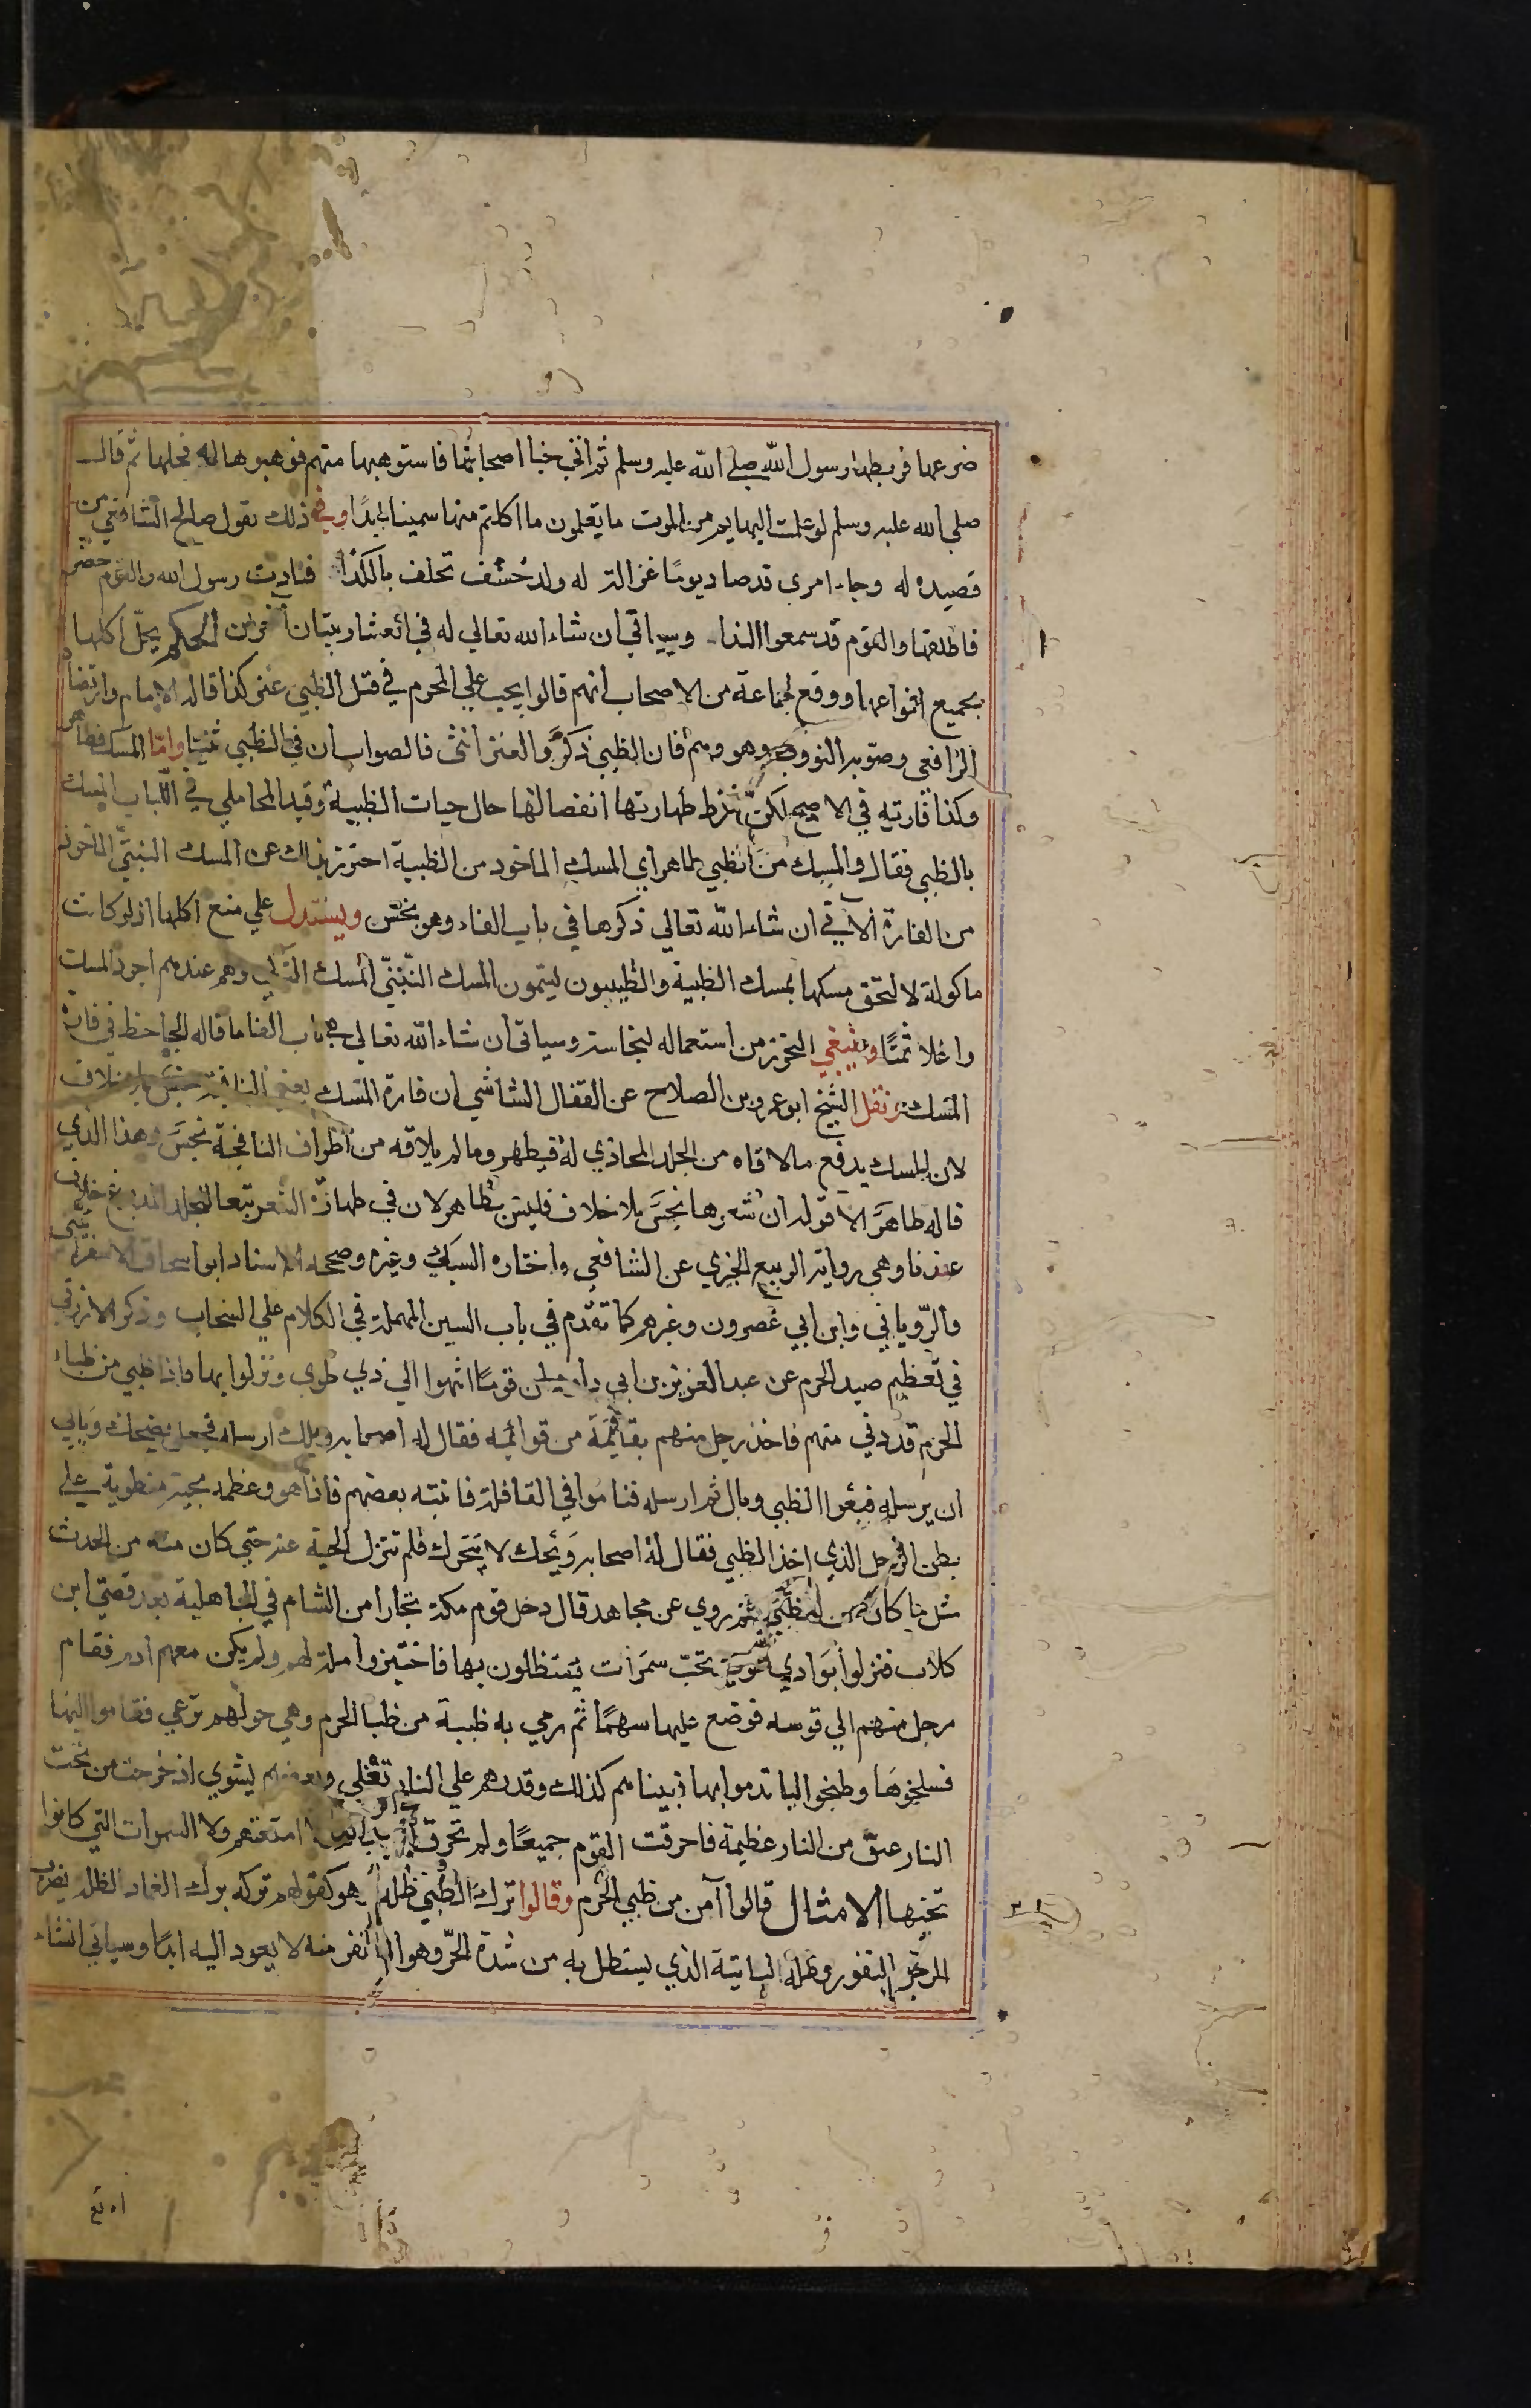 ضرعها فربطها رسول الله صلى الله عليه وسلم ثم اتى خبا اصحابها فاستوهبها منهم فوهبوها له فحلها ثم قال
صلى الله عليه وسلم لو علمت البهايم من الموت ما تعلمون ما اكلتم منها سمينا ابدًا وفي ذلك يقول صالح الشافعي من
قصيده له وجاء امرى قد صاد يومًا غزالة له ولد خشف تخلف بالكدا فنادت رسول الله والقوم حضر
فاطلقها والقوم قد سمعوا الندا وسياتي ان شاء الله تعالى له في العشار بيتان اخران الحكم يحل اكلها
بجميع انواعها ووقع لجماعة من الاصحاب انهم قالوا يجب على المحرم في قتل الظبي عنز كذا قاله الامام وارتضاه
الرافعي وصوبه النووي وهو وهم فان الظبي ذكر والعنز انثى فالصواب ان في الظبي ثنيا واما المسك فطاهر
وكذا فارته في الاصح لكن شرط طهارتها انفصالها حال حيات الظبية وقيد المحاملي في اللباب المسك
بالظبي فقال والمسك من الظبي طاهر اي المسك الماخود من الظبية احترز بذلك عن المسك التبتي الماخوذ
من الفارة الآتي ان شاء الله تعالى ذكرها في باب الفاء وهو نجس ويستدل على منع اكلها اذ لو كانت
ماكولة لالتحق مسكها بمسك الظبية والطيبيون ليتمون المسك التبتي المسك التركي وهو عندهم اجود المسك
واغلا ثمنًا وينبغي التحرز من استعماله لنجاسته وسياتي ان شاء الله تعالى في باب الفا ما قاله الجاحظ في فارة
المسك ونقل الشيخ ابو عمرو بن الصلاح عن القفال الشاشي ان فارة المسك يعني النافجة
لان المسك يدفع ما لاقاه من الجلد المحاذي له فيطهر وما لم يلاقه من اطراف النافجة نجس وهذا الذي
قاله ظاهر الا قوله ان شعرها نجس بلا خلاف فليس بظاهر لان في طهارة الشعر تبعا للجلد المدبوغ خلاف
عندنا وهي رواية الربيع الجيزي عن الشافعي واختاره السبكي وغيره وصححه الاستاد ابو اسحاق الاسفرايني
والروياني وابن ابي عصرون وغيرهم كما تقدم في باب السين المهملة في الكلام على السنجاب وذكر الازرقي
في تعظيم صيد الحرم عن عبد العزيز بن ابي داود ان قومًا انتهوا الى ذي طوى ونزلوا بها فاذا ظبي من ظباء
الحرم قد دنى منهم فاخذ رجل منهم بقايمة من قوائمه فقال له اصحابه ويلك ارسله فجعل يضحك ويابى
ان يرسله فبعر الظبي وبال ثم ارسله فناموا في القافلة فانتبه بعضهم فاذا هو وعظم بحية منطوية على
بطن الرجل الذي اخذ الظبي فقال له اصحابه ويحك لا تتحرك فلم تنزل الحية عنه حتى كان منه من الحدث
مثل ما كان من الظبي ثم روي عن مجاهد قال دخل قوم مكة تجارا من الشام في الجاهلية بعد قصي ابن
كلاب فنزلوا بوادي طوى تحت سمرات يستظلون بها فاختبزوا ملة لهم ولم يكن معهم ادم فقام
رجل منهم الى قوسه فوضع عليها سهمًا ثم رمى به ظبية من ظبا الحرم وهي حولهم ترعى فقاموا اليها
فسلخوها وطبخوا ليا تدموا بها فبيناهم كذلك وقدرهم على النار تغلي وبعضهم يشوي اذ خرجت من تحت
النار عنق من النار عظيمة فاحرقت القوم جميعًا ولم تحرق ثيابهم ولا امتعتهم ولا السمرات التي كانوا
تحتها الامثال قالوا آمن من ظبي الحرم وقالوا ترك الظبي ظله هو كقولهم تركه ترك الغزال لظله يضرب
للرجل النفور وظله الذي يستظل به من شدة الحر وهو اذا نفر منه لا يعود اليه ابدًا وسياتي انشاء